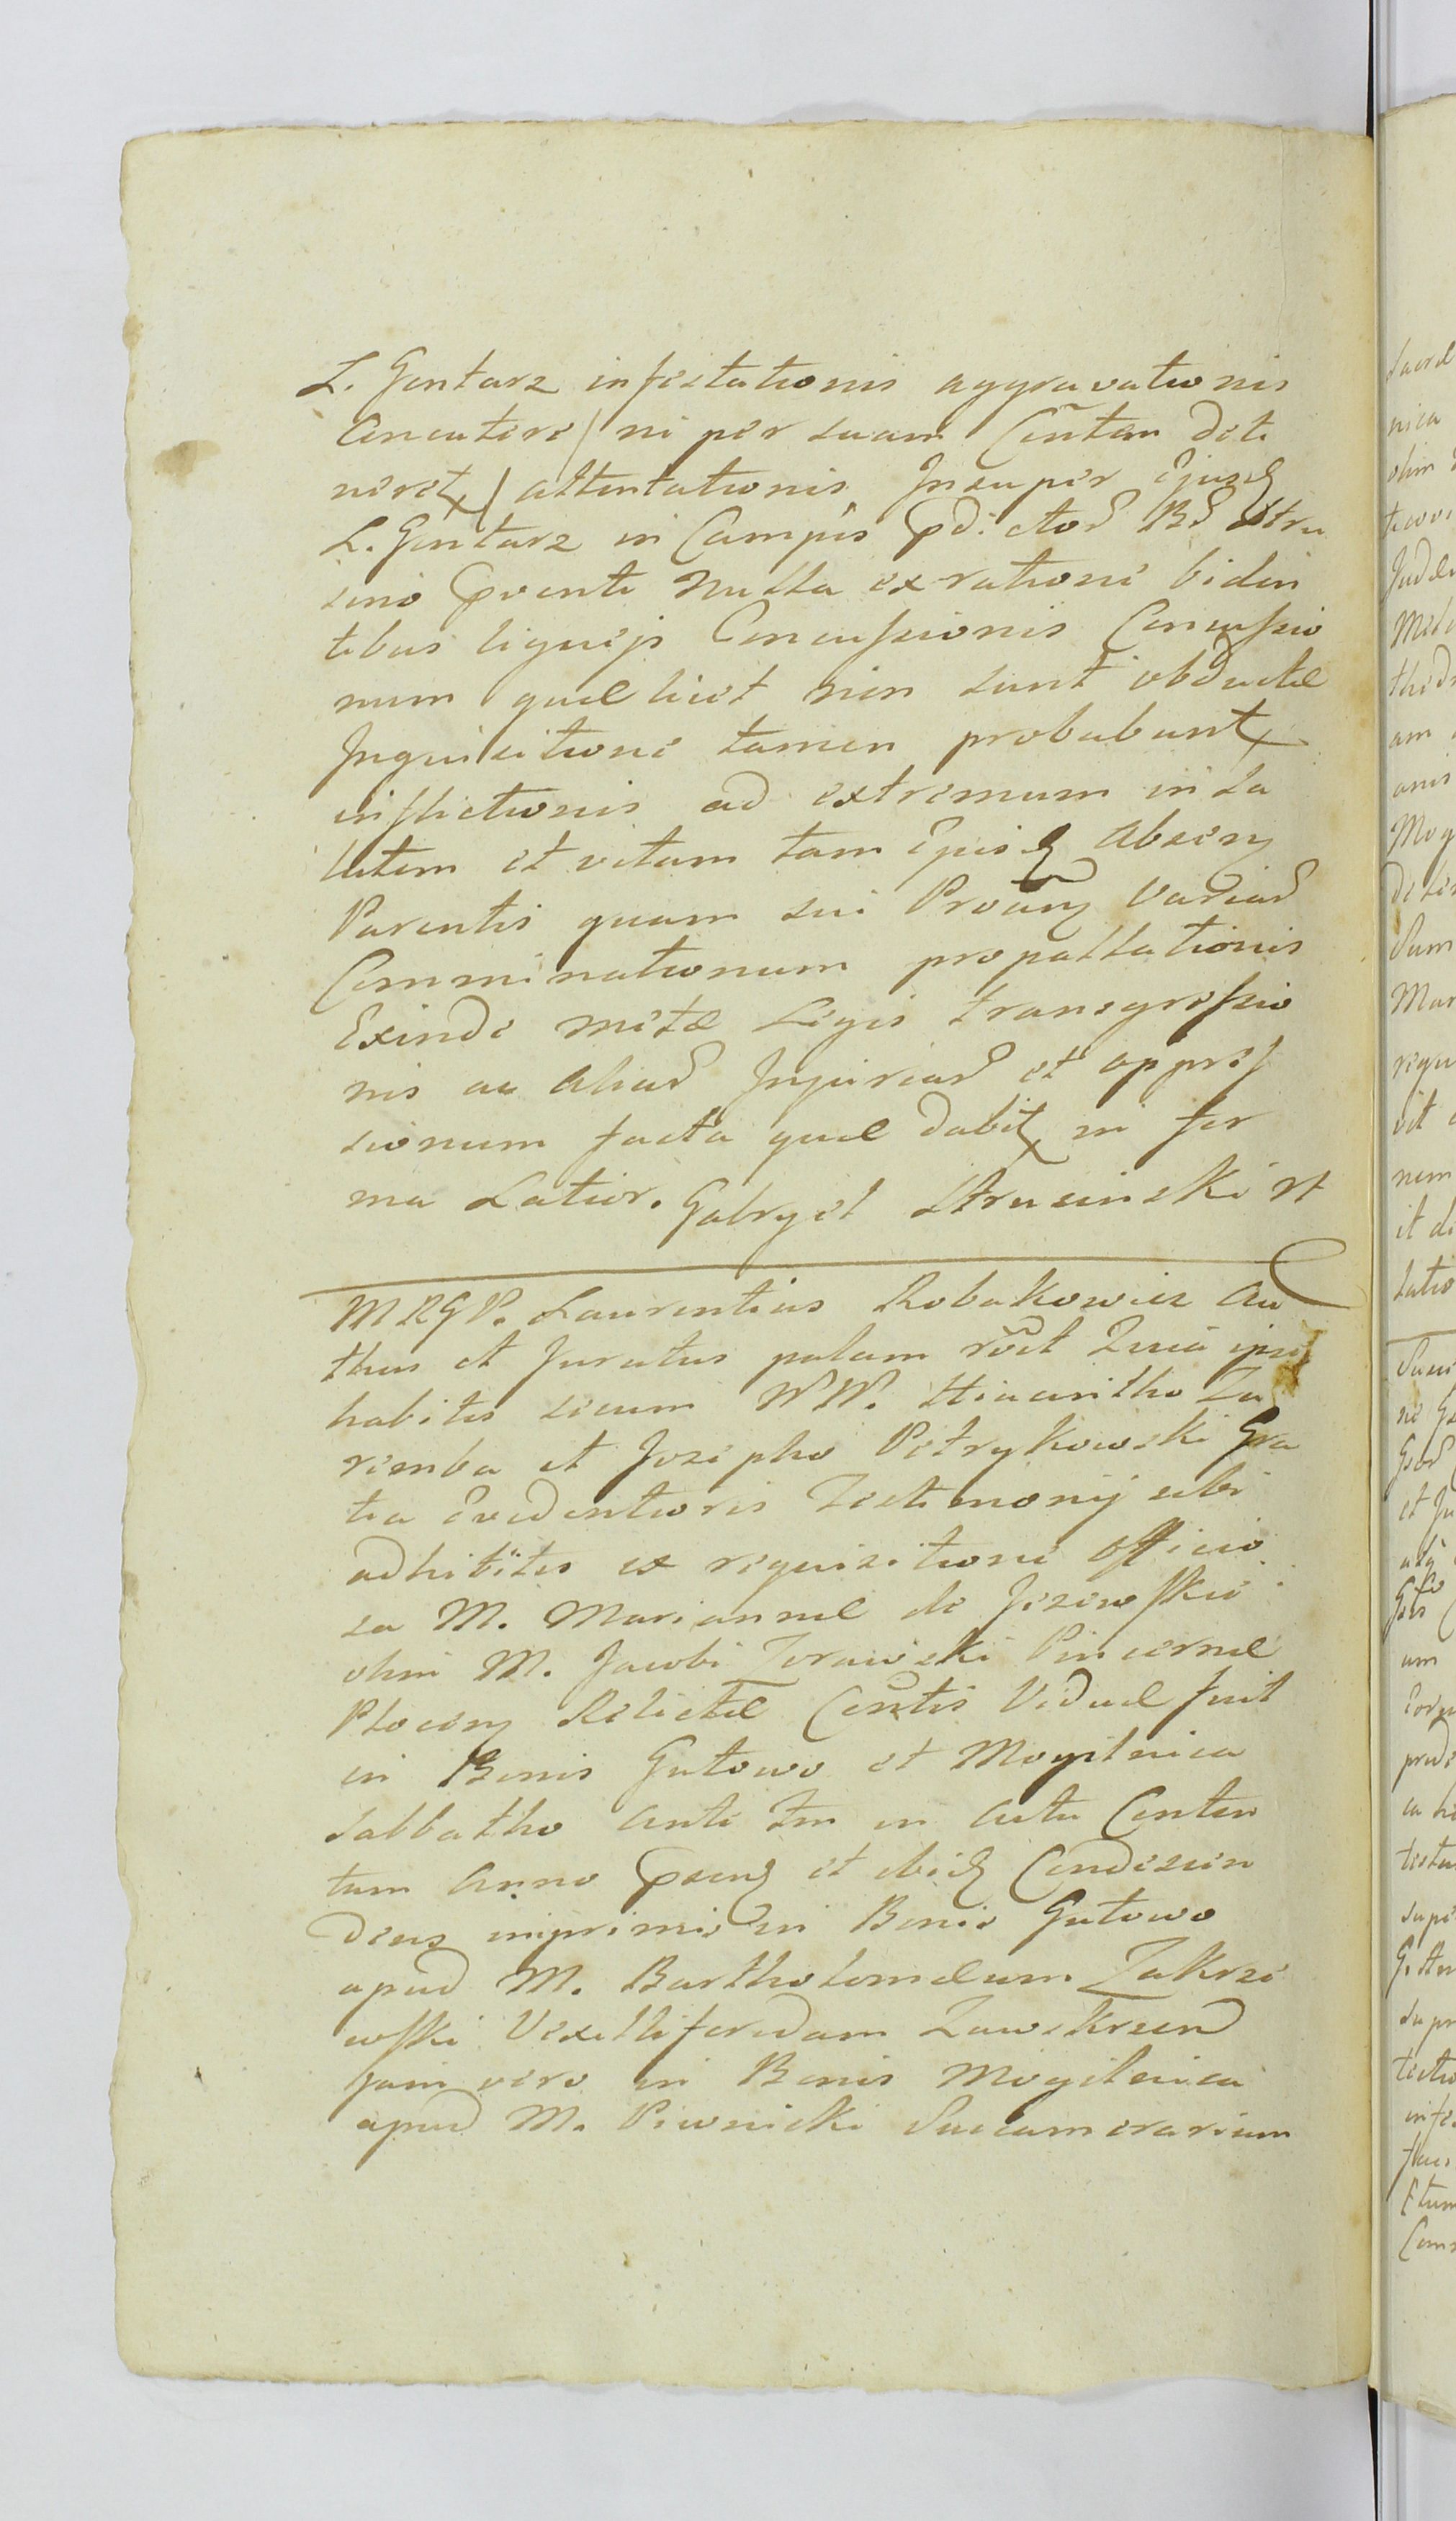 L. Gontarz infestationis aggravationis
Concutere / ni per suam Cõntam deti
neret / attentationis Insuper Ejusd
L. Gontarz in Campis pdictor Br Stru
sino pventi nulla ex ratione biden
tibus ligneis Concussionis Concussio
num quæ licet non sunt obductæ
Inquisitione tamen probabunt
inflictionis ad extremum in sa
lutem et vitam tam Ejusd Absen
Parentis quam sui Provan Variar
Comminationum propallationis
Exinde metæ Legis transgressio
nis ac aliar Injuriar et oppres
sionum facta quæ dabit in for
ma Latior. Gabryel Strusinski
MRGP. Laurentius Robakowicz Au
thus et Juratus palam rõct Quia ipse
habitis secum NN. Hiacintho Za
remba et Josepho Petrykowski Gra
tia Evidentioris Testimonij sibi
adhibitis ex requisitione officio
sa M. Mariannæ de Jezewskie
olim M. Jacobi Zorawski Pincernæ
Plocen Relictæ Consortis Viduæ fuit
in Bonis Gutowo et Mogilnica
Sabbatho ante Im in actu Conten
tum Anno psen et ibid Condescen
dens inprimis in Bonis Gutowo
apud M. Bartholomæum Zakrze
wski Vexilliferidam Zawskrzen
jam vero in Bonis Mogilnica
apud M. Piwnicki Succamerarium